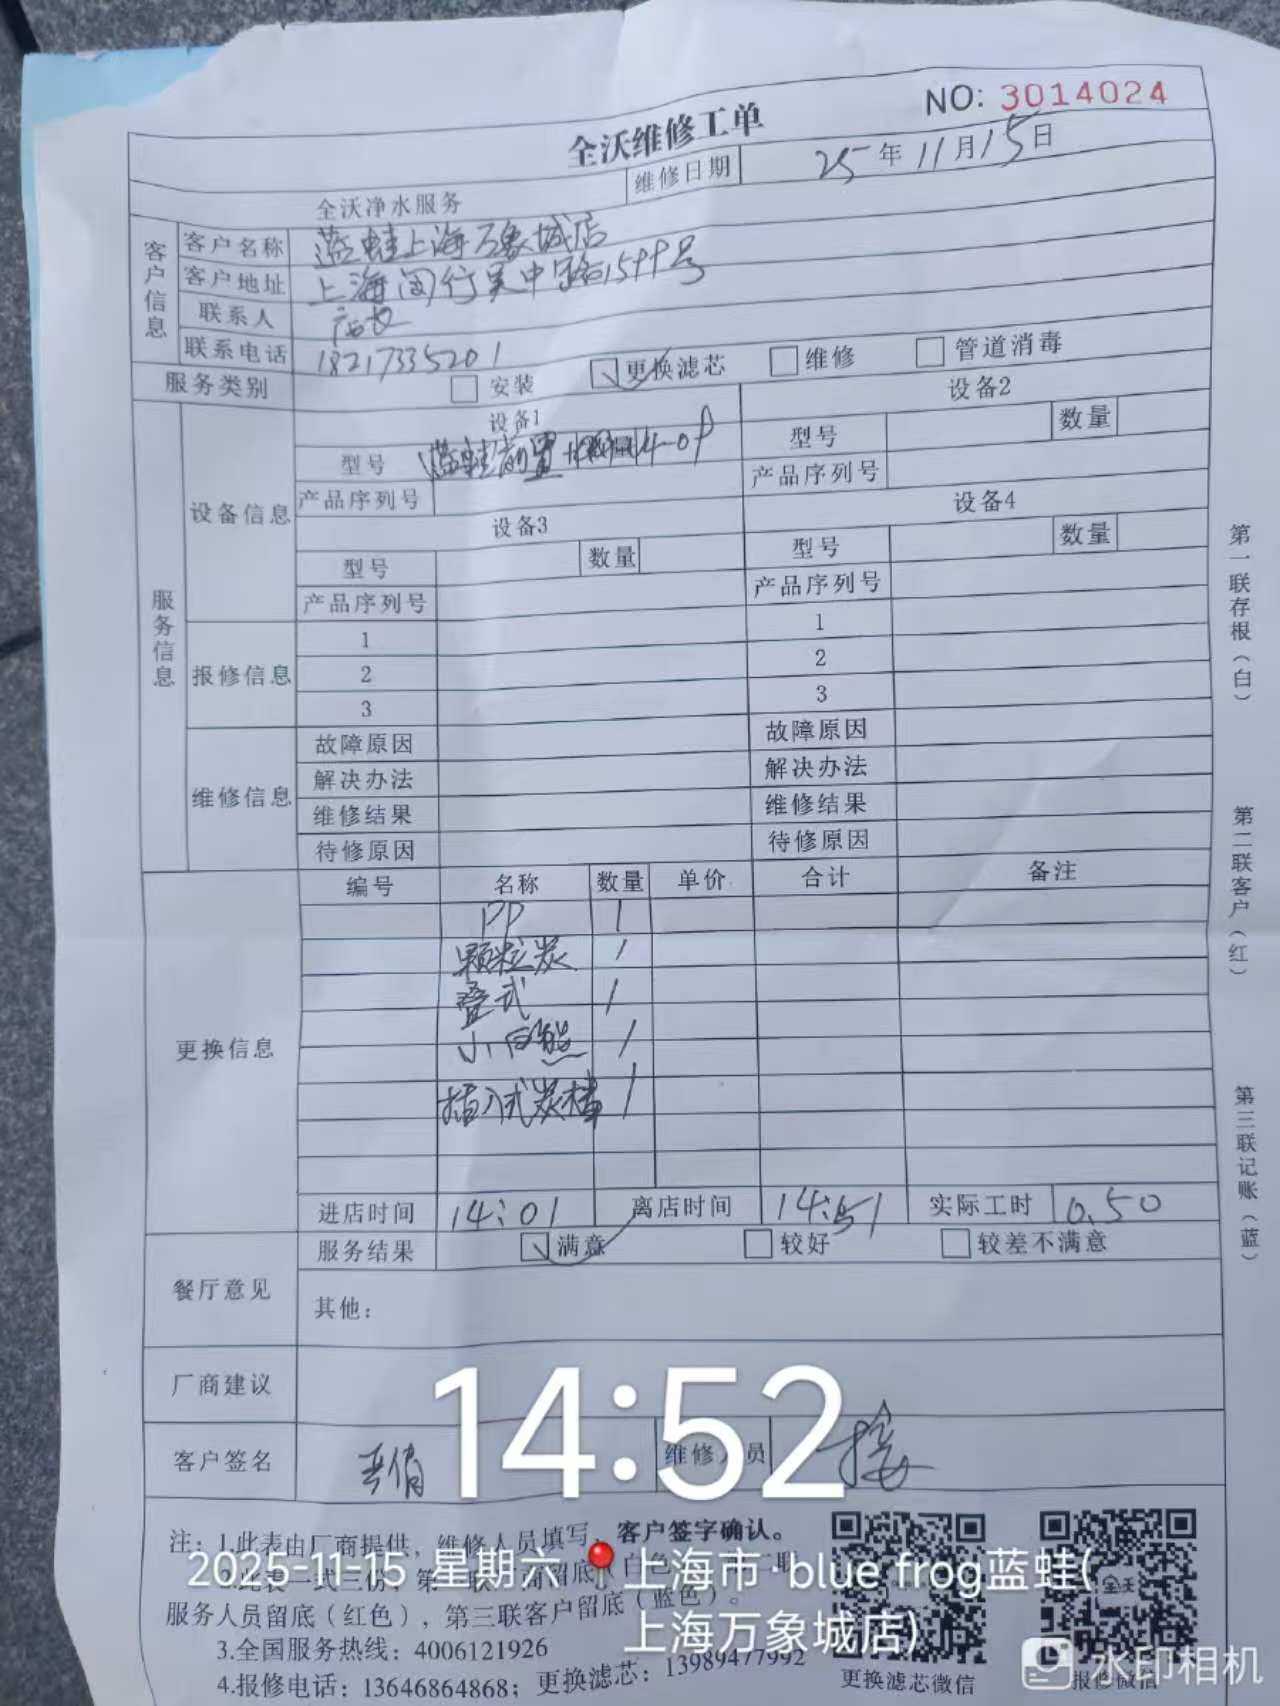 NO: 3014024
全沃维修工单
全沃净水服务 维修日期 25年11月15日
客户信息
客户名称 蓝蛙上海万象城店
客户地址 上海闵行吴中路1599号
联系人 店长
联系电话 18217335201
服务类别 安装 更换滤芯 维修 管道消毒
服务信息
设备信息
设备1 设备2
型号 蓝蛙前置 4-0P 型号 数量
产品序列号 产品序列号
设备3 设备4
型号 数量 型号 数量
产品序列号 产品序列号
报修信息
1 1
2 2
3 3
维修信息
故障原因 故障原因
解决办法 解决办法
维修结果 维修结果
待修原因 待修原因
更换信息
编号 名称 数量 单价 合计 备注
PP 1
颗粒炭 1
叠式 1
小白熊 1
插入式炭棒 1
进店时间 14:01 离店时间 14:51 实际工时 0.50
餐厅意见
服务结果 满意 较好 较差不满意
其他:
厂商建议
客户签名 维修人员
14:52
注: 1.此表由厂商提供, 维修人员填写, 客户签字确认。
2.此表一式三份, 第
服务人员留底(红色), 第三联客户留底(蓝色)。
3.全国服务热线: 4006121926
4.报修电话: 13646864868; 更换滤芯: 13989477992
更换滤芯微信 报修微信
2025-11-15 星期六 上海市·blue frog蓝蛙(
上海万象城店)
水印相机
第一联存根(白)
第二联客户(红)
第三联记账(蓝)
全沃